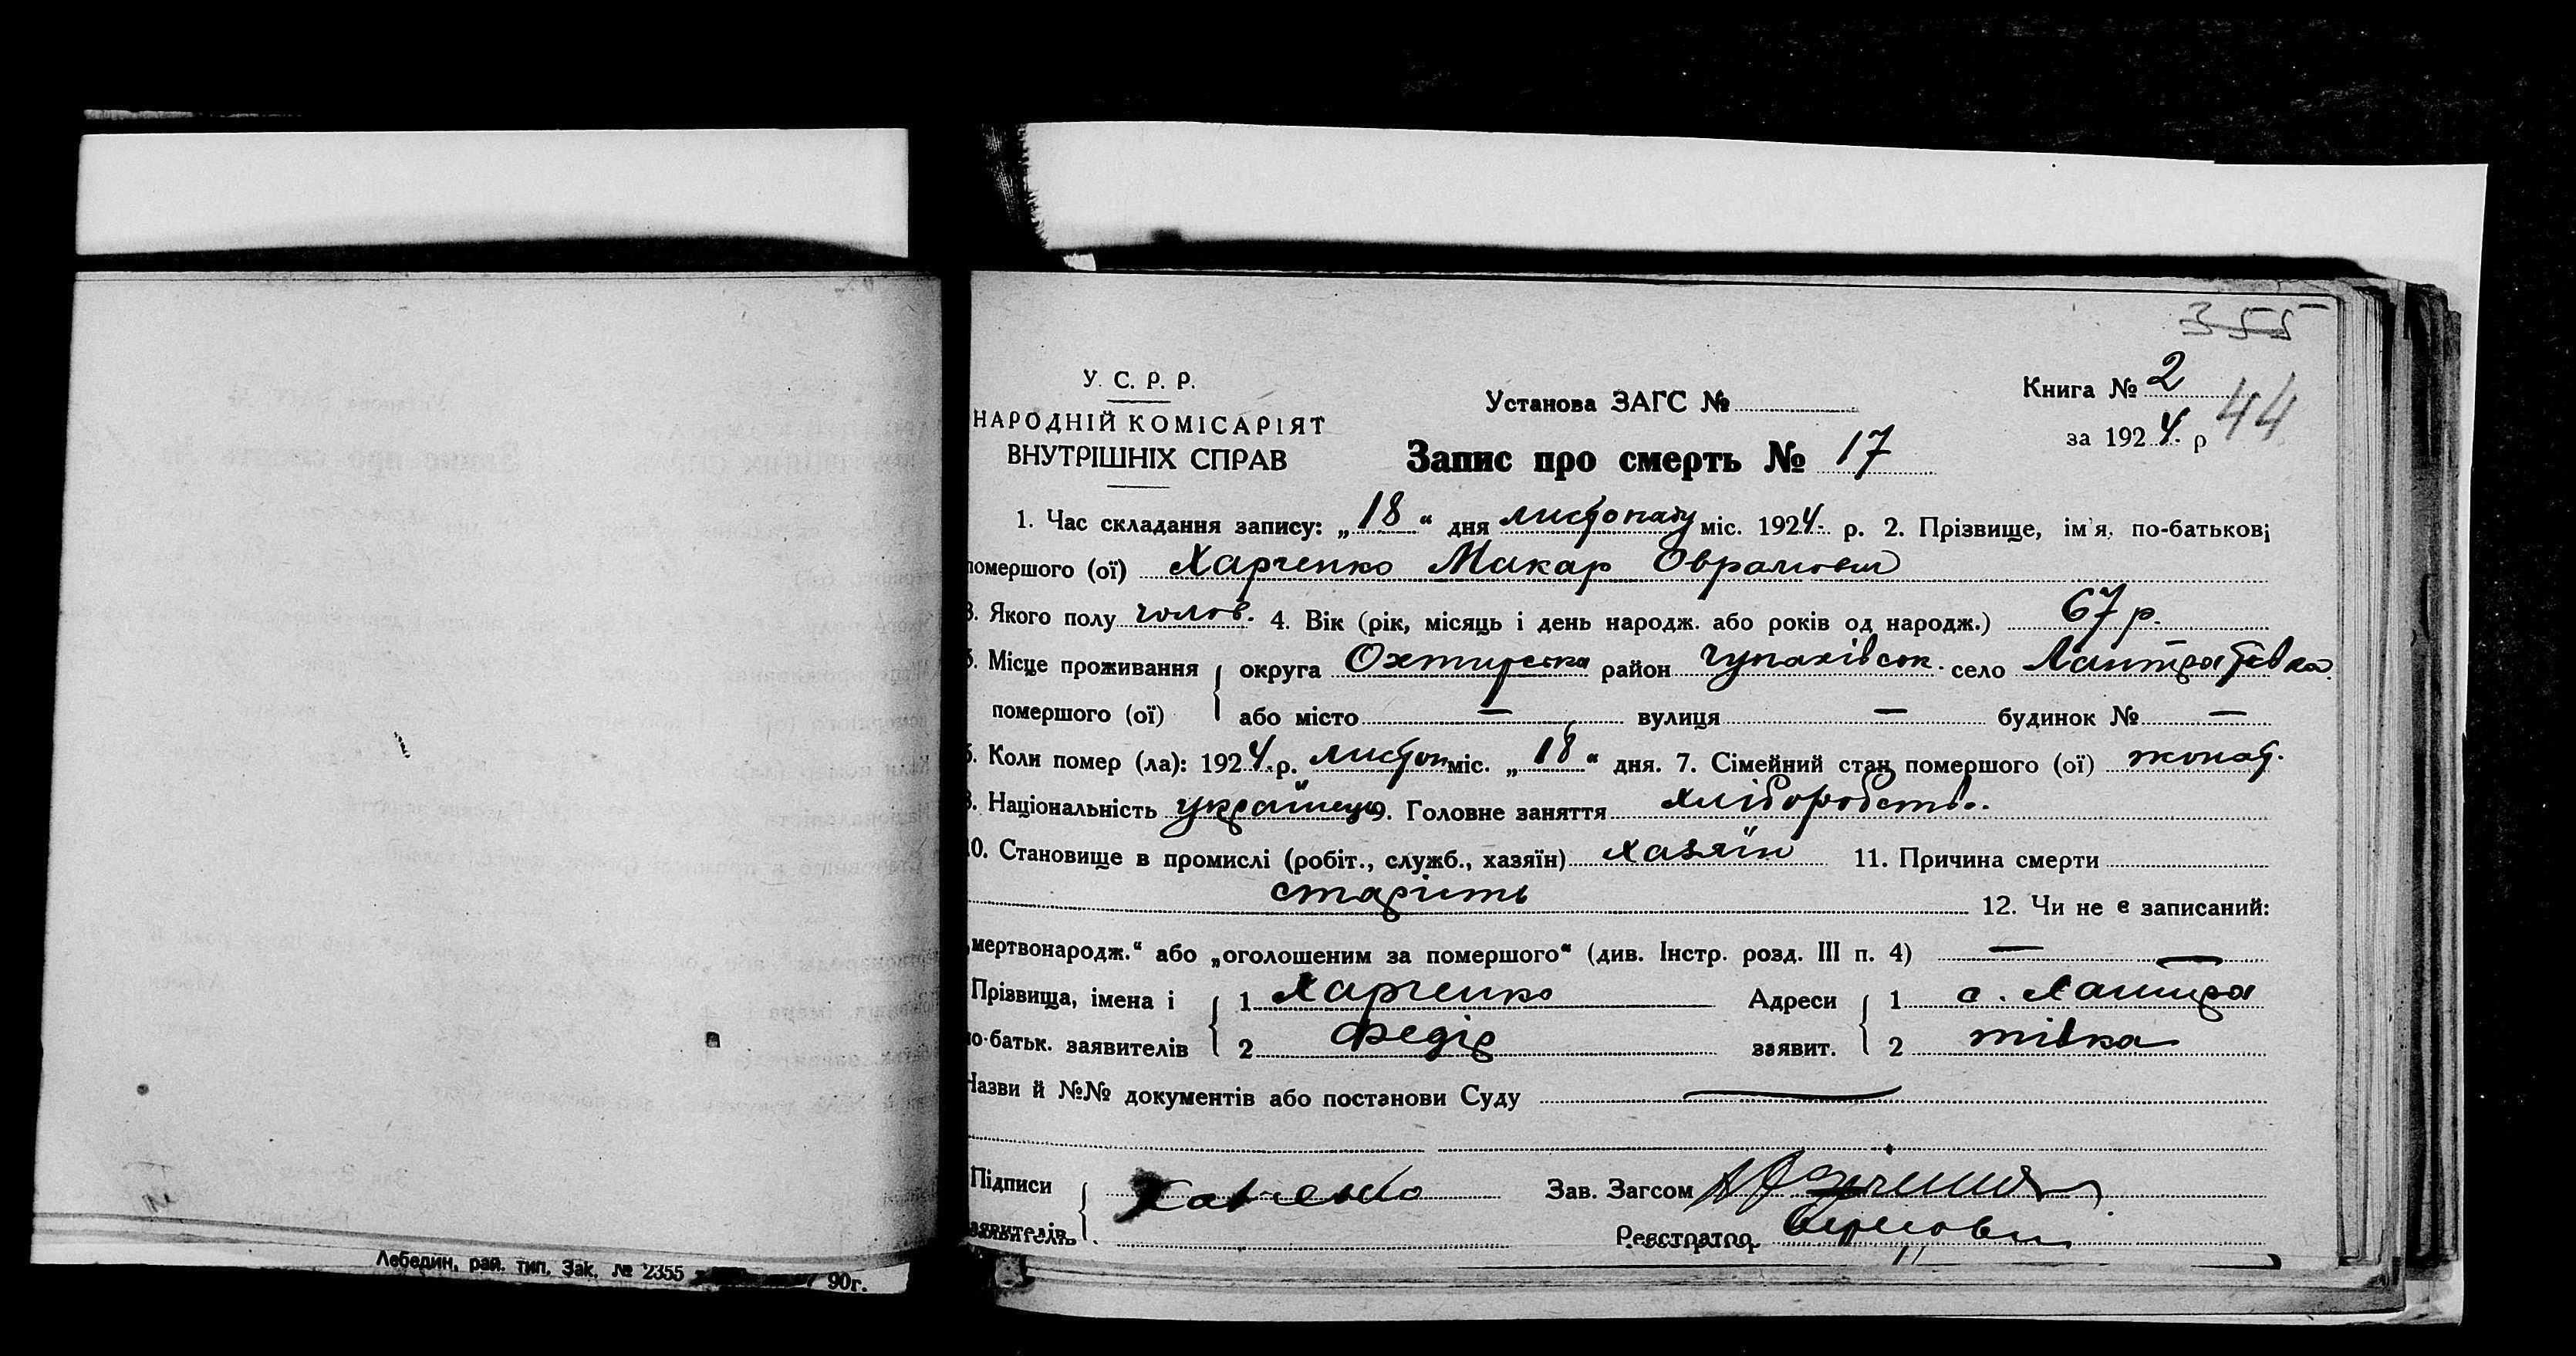 355
У. С. Р. Р.
НАРОДНІЙ КОМІСАРІЯТ
ВНУТРІШНІХ СПРАВ
Установа ЗАГС №
Книга № 2
за 1924 р
44
Запис про смерть № 17
1. Час складання запису: „18“ дня листопаду міс. 1924 р. 2. Прізвище, ім'я, по-батькові
помершого (ої) Харченко Макар Оврамович
3. Якого полу чолов. 4. Вік (рік, місяць і день народж. або років од народж.) 67 р.
5. Місце проживання округа Охтирська район Чупахівськ. село Лантратівка
помершого (ої) або місто — вулиця — будинок № —
6. Коли помер (ла): 1924 р. листоп міс. „18“ дня. 7. Сімейний стан помершого (ої) жонат.
8. Національність українець 9. Головне заняття хліборобство.
10. Становище в промислі (робіт., служб., хазяїн) хазяїн 11. Причина смерти
старість 12. Чи не є записаний:
„мертвонародж.“ або „оголошеним за помершого“ (див. Інстр. розд. III п. 4) — —
Прізвища, імена і 1 Харченко Адреси 1 с. Лантра
по-батьк. заявителів 2 Федір заявит. 2 тівка
Назви й №№ документів або постанови Суду —
Підписи Харченко Зав. Загсом
заявителів. Реєстратор
Лебедин, рай. тип. Зак. № 2355 90г.